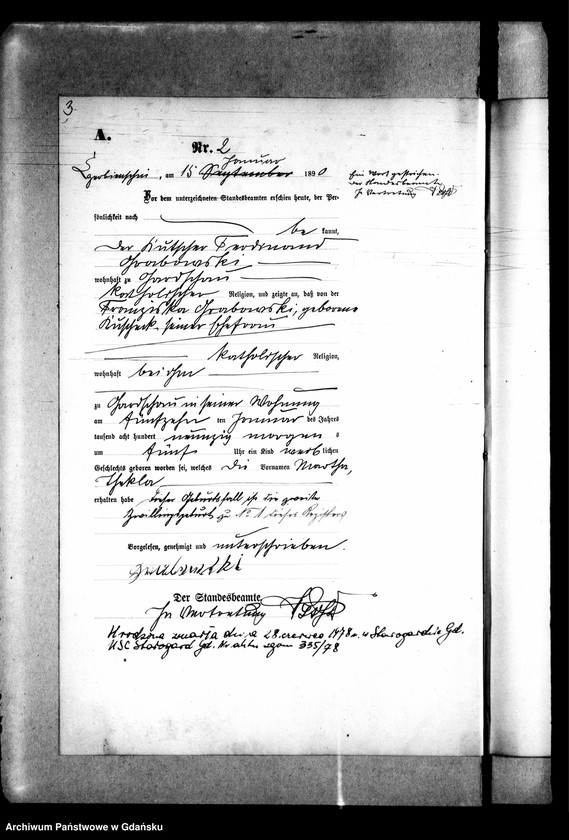 3.
A.
Nr. 2
Januar
am 15 September 1890
Ein Wort gestrichen.
Der Standesbeamte
In Vertretung
Vor dem unterzeichneten Standesbeamten erschien heute, der Per-
sönlichkeit nach
be kannt,
der Kutscher Ferdinand
Grabowski
wohnhaft zu Gardschau
katholischer Religion, und zeigte an, daß von der
Franziska Grabowski, geborene
Kuscheck seiner Ehefrau
katholischer Religion,
wohnhaft bei ihm
zu Gardschau in seiner Wohnung
am fünfzehn ten Januar des Jahres
tausend acht hundert neunzig morgens
um fünf Uhr ein Kind weib lichen
Geschlechts geboren worden sei, welches die Vornamen Martha,
Thekla
erhalten habe Dieser Geburtsfall ist die zweite
Zwillingsgeburt zu No 1 dieses Registers
Vorgelesen, genehmigt und unterschrieben.
Grabowski
Der Standesbeamte.
In Vertretung
W rodzona zmarła dnia 28. czerwca 1978 r. w Starogardzie Gd.
USC Starogard Gd. Nr aktu zgonu 335/78
Archiwum Państwowe w Gdańsku